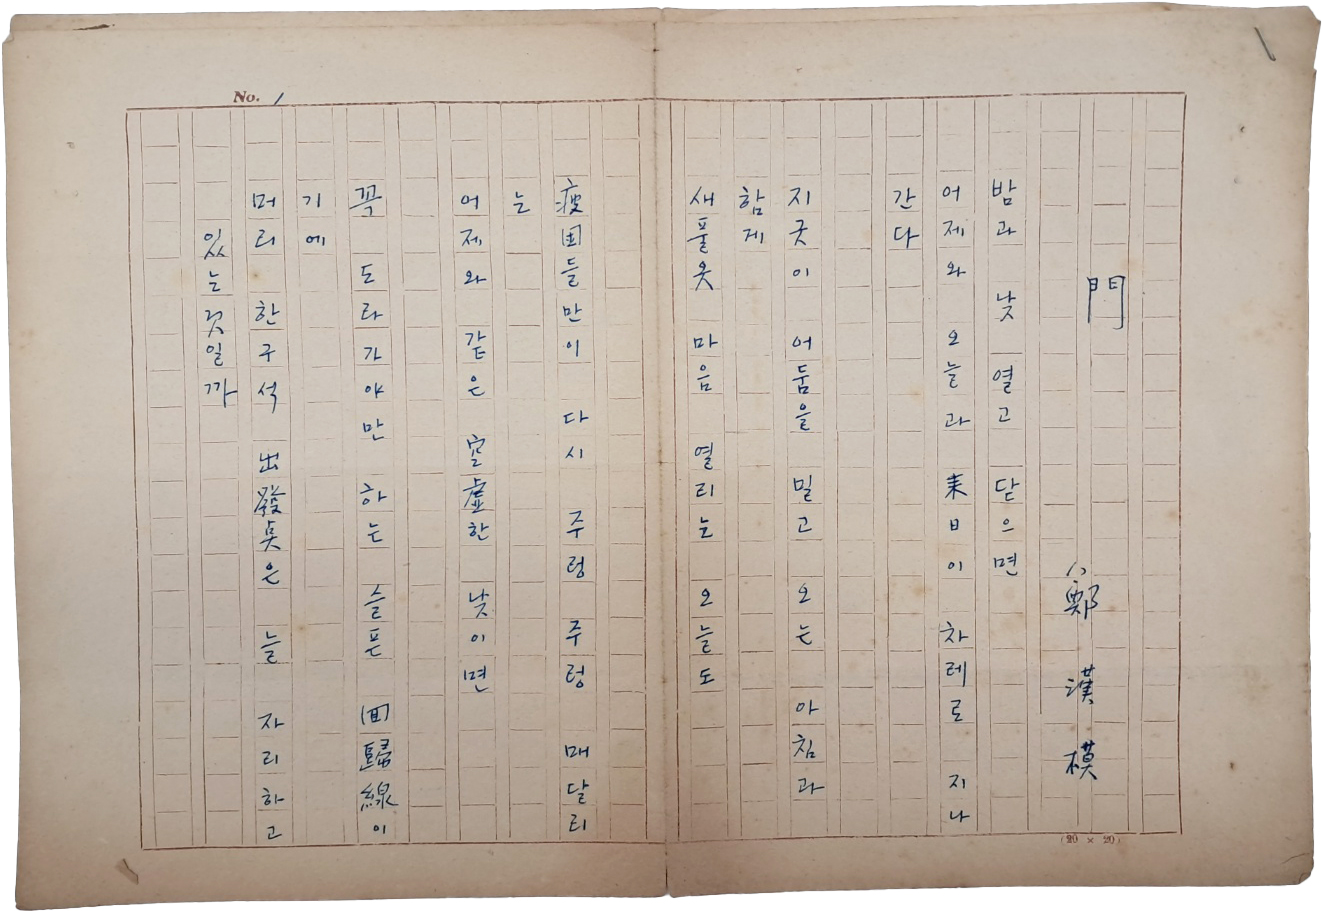 No. 1
門
鄭漢模
밤과 낮 열고 닫으면
어제와 오늘과 来日이 차례로 지나
간다
지긋이 어둠을 밀고 오는 아침과
함께
새풀옷 마음 열리는 오늘도
疲困들만이 다시 주렁 주렁 매달리
는
어제와 같은 空虛한 낮이면
꼭 도라가야만 하는 슬픈 回歸線이
기에
머리 한구석 出發点은 늘 자리하고
있는것일까
(20 × 20)